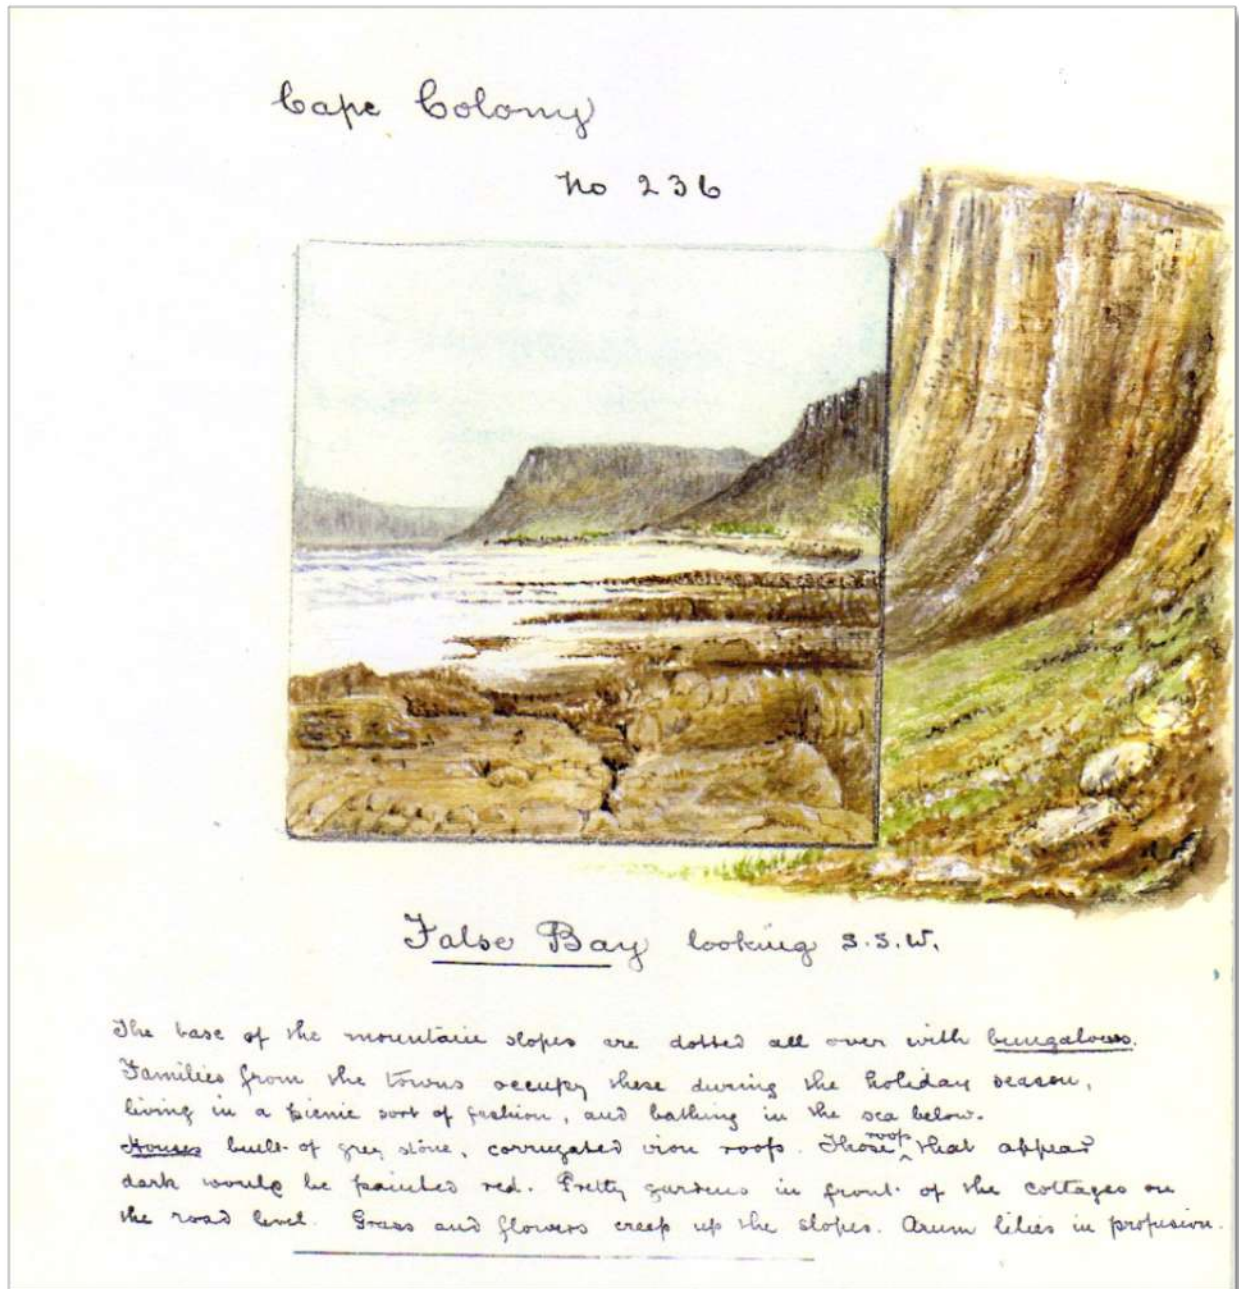 Cape Colony
No 236
False Bay looking S.S.W.
The base of the mountain slopes are dotted all over with bungalows.
Families from the towns occupy these during the holiday season,
living in a picnic sort of fashion, and bathing in the sea below.
Houses built of grey stone, corrugated iron roofs. Those roofs that appear
dark would be painted red. Pretty gardens in front of the cottages on
the road level. Grass and flowers creep up the slopes. Arum lilies in profusion.